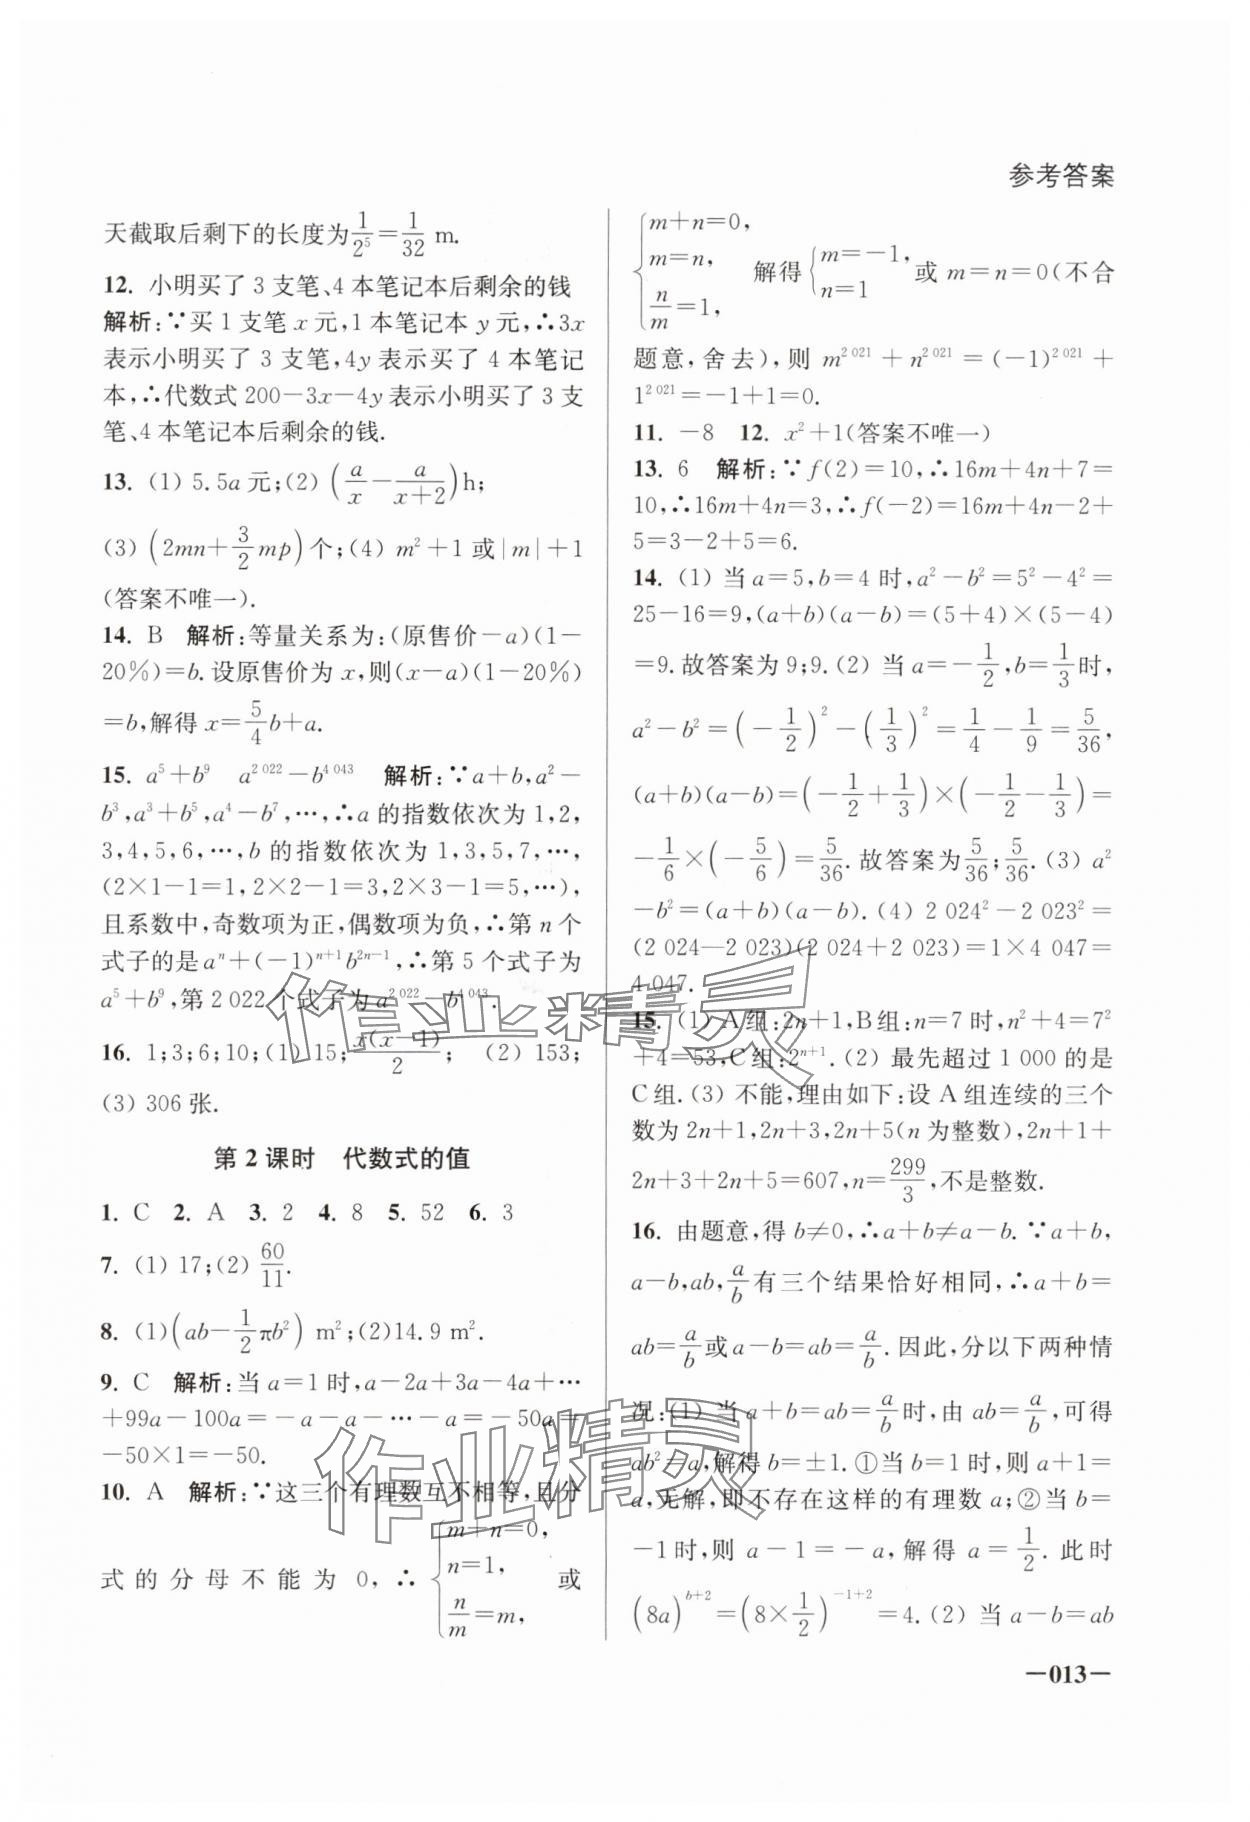 参考答案
天截取后剩下的长度为1/2⁵=1/32 m.
12. 小明买了 3 支笔、4 本笔记本后剩余的钱
解析:∵买 1 支笔 x 元,1 本笔记本 y 元,∴3x
表示小明买了 3 支笔,4y 表示买了 4 本笔记
本,∴代数式 200-3x-4y 表示小明买了 3 支
笔、4 本笔记本后剩余的钱.
13. (1) 5.5a 元;(2) (a/x - a/(x+2))h;
(3) (2mn+3/2 mp)个;(4) m²+1 或|m|+1
(答案不唯一).
14. B 解析:等量关系为:(原售价-a)(1-
20%)=b.设原售价为 x,则(x-a)(1-20%)
=b,解得 x=5/4 b+a.
15. a⁵+b⁹ a^{2 022}-b^{4 043} 解析:∵a+b,a²-
b³,a³+b⁵,a⁴-b⁷,…,∴a 的指数依次为 1,2,
3,4,5,6,…,b 的指数依次为 1,3,5,7,…,
(2×1-1=1,2×2-1=3,2×3-1=5,…),
且系数中,奇数项为正,偶数项为负,∴第 n 个
式子的是 aⁿ+(-1)^{n+1}b^{2n-1},∴第 5 个式子为
a⁵+b⁹,第 2 022 个式子为 a^{2 022}-b^{4 043}.
16. 1;3;6;10;(1) 15; x(x-1)/2; (2) 153;
(3) 306 张.
第 2 课时 代数式的值
1. C 2. A 3. 2 4. 8 5. 52 6. 3
7. (1) 17;(2) 60/11.
8. (1)(ab-1/2 πb²) m²;(2)14.9 m².
9. C 解析:当 a=1 时,a-2a+3a-4a+…
+99a-100a=-a-a-…-a=-50a=
-50×1=-50.
10. A 解析:∵这三个有理数互不相等,且分
式的分母不能为 0,∴ {m+n=0, n=1, n/m=m, 或
{m+n=0, m=n, n/m=1, 解得 {m=-1, n=1 或 m=n=0(不合
题意,舍去),则 m^{2 021}+n^{2 021}=(-1)^{2 021}+
1^{2 021}=-1+1=0.
11. -8 12. x²+1(答案不唯一)
13. 6 解析:∵f(2)=10,∴16m+4n+7=
10,∴16m+4n=3,∴f(-2)=16m+4n-2+
5=3-2+5=6.
14. (1) 当 a=5,b=4 时,a²-b²=5²-4²=
25-16=9,(a+b)(a-b)=(5+4)×(5-4)
=9.故答案为 9;9.(2) 当 a=-1/2,b=1/3时,
a²-b²=(-1/2)²-(1/3)²=1/4-1/9=5/36,
(a+b)(a-b)=(-1/2+1/3)×(-1/2-1/3)=
-1/6×(-5/6)=5/36.故答案为5/36;5/36.(3) a²
-b²=(a+b)(a-b).(4) 2 024²-2 023²=
(2 024-2 023)(2 024+2 023)=1×4 047=
4 047.
15. (1) A组:2n+1,B组:n=7 时,n²+4=7²
+4=53,C组:2^{n+1}.(2) 最先超过 1 000 的是
C组.(3) 不能,理由如下:设 A 组连续的三个
数为 2n+1,2n+3,2n+5(n 为整数),2n+1+
2n+3+2n+5=607,n=299/3,不是整数.
16. 由题意,得 b≠0,∴a+b≠a-b.∵a+b,
a-b,ab,a/b有三个结果恰好相同,∴a+b=
ab=a/b或 a-b=ab=a/b.因此,分以下两种情
况:(1) 当 a+b=ab=a/b时,由 ab=a/b,可得
ab²=a,解得 b=±1.①当 b=1 时,则 a+1=
a,无解,即不存在这样的有理数 a;②当 b=
-1时,则 a-1=-a,解得 a=1/2.此时
(8a)^{b+2}=(8×1/2)^{-1+2}=4.(2) 当 a-b=ab
作业精灵
作业精灵
—013—